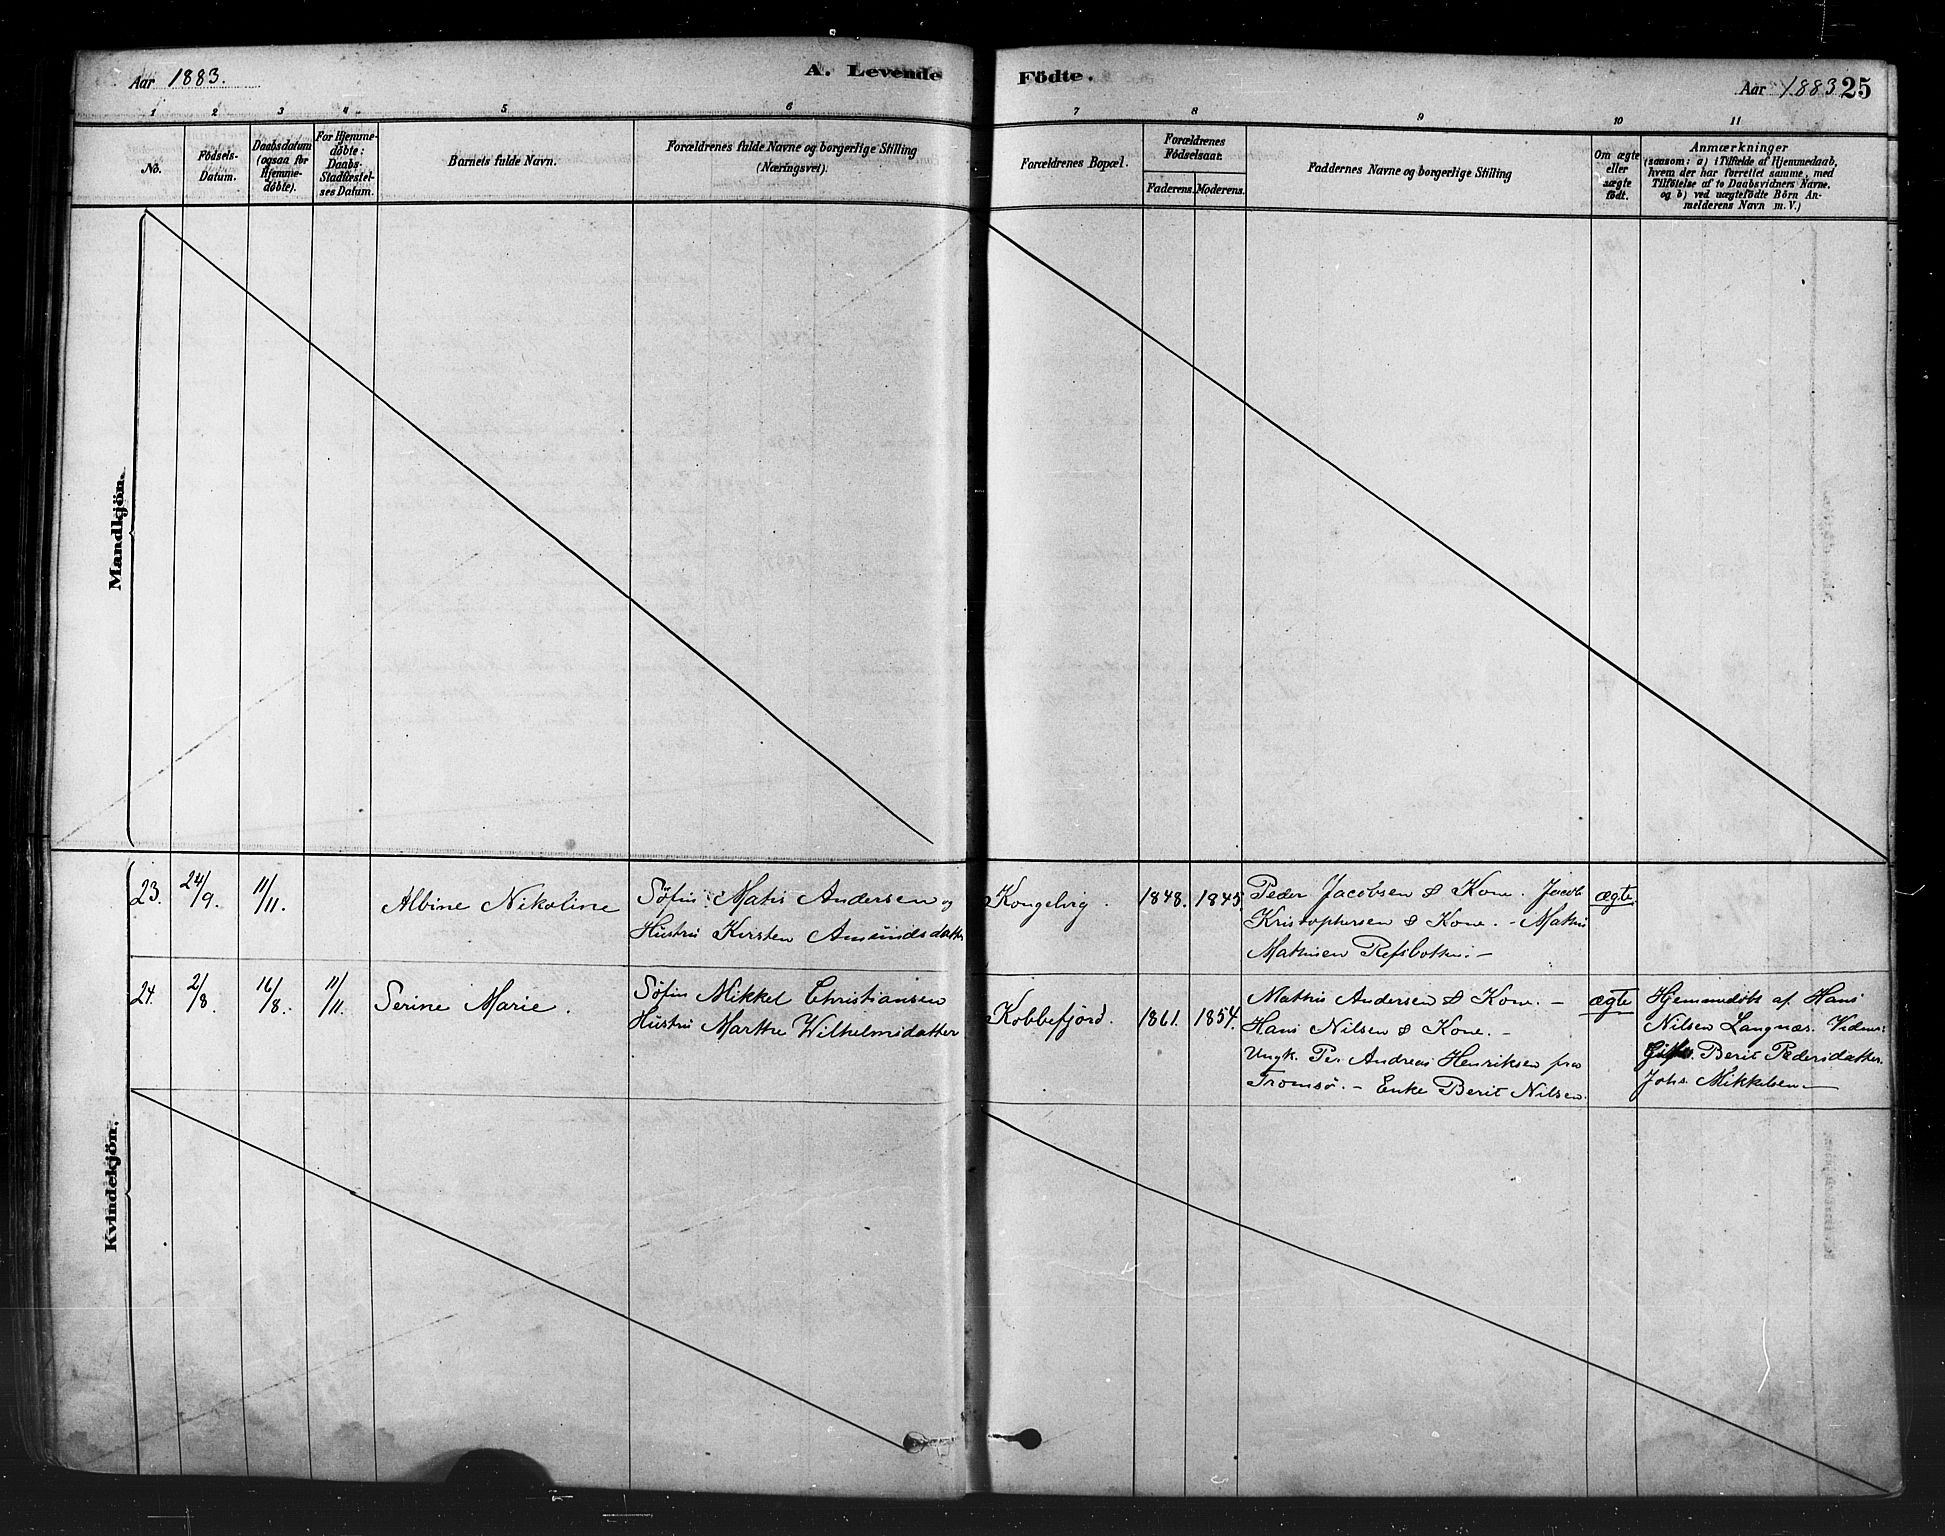 Aar 1883.
A. Levende Födte.
Aar 1883 25
1 2 3 4 5 6 7 8 9 10 11
No.
Födsels-
Datum.
Daabsdatum
(ogsaa for
Hjemme-
döbte).
For Hjemme-
döbte:
Daabs-
Stadfæstel-
ses Datum.
Barnets fulde Navn.
Forældrenes fulde Navne og borgerlige Stilling
(Næringsvei).
Forældrenes Bopæl.
Forældrenes
Födselsaar.
Faderens. Moderens.
Faddernes Navne og borgerlige Stilling
Om ægte
eller
uægte
födt.
Anmærkninger
(saasom: a) i Tilfælde af Hjemmedaab,
hvem der har forrettet samme, med
Tilföielse af to Daabsvidners Navne.
og b) ved uægtefödte Börn An-
melderens Navn m. V.)
Mandkjön.
Kvindekjön.
23. 24/9. 11/11. Albine Nikoline
Søfin: Matis Andersen og
Hustru Kirsten Amundsdatter
Kongelvig. 1848. 1845.
Peder Jacobsen & Kone. Jacob
Kristophersen & Kone. - Mathis
Mathisen Refsbotten. -
ægte.
24. 2/8. 16/8. 11/11. Serine Marie.
Søfin Mikkel Christiansen
Hustru Marthe Wilhelmsdatter
Kobbefjord. 1861. 1854.
Mathis Andersen & Kone. -
Hans Nilsen & Kone. -
Ungk. Per Andreas Henriksen fra
Tromsö. - Enke Berit Nilsen.
ægte
Hjemmedøbt af Hans
Nilsen Langnæs. Vidner:
Berit Pedersdatter.
Johs. Mikkelsen -